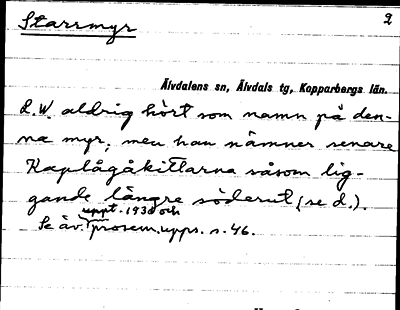 2
Starrmyr
Älvdalens sn, Älvdals tg, Kopparbergs län.
L.W. aldrig hört som namn på den-
na myr, men han nämner senare
Kaplågåkittarna såsom lig-
gande längre söderut (se d.).
uppt. 1930 och
Se äv. prosem.upps. s. 46.